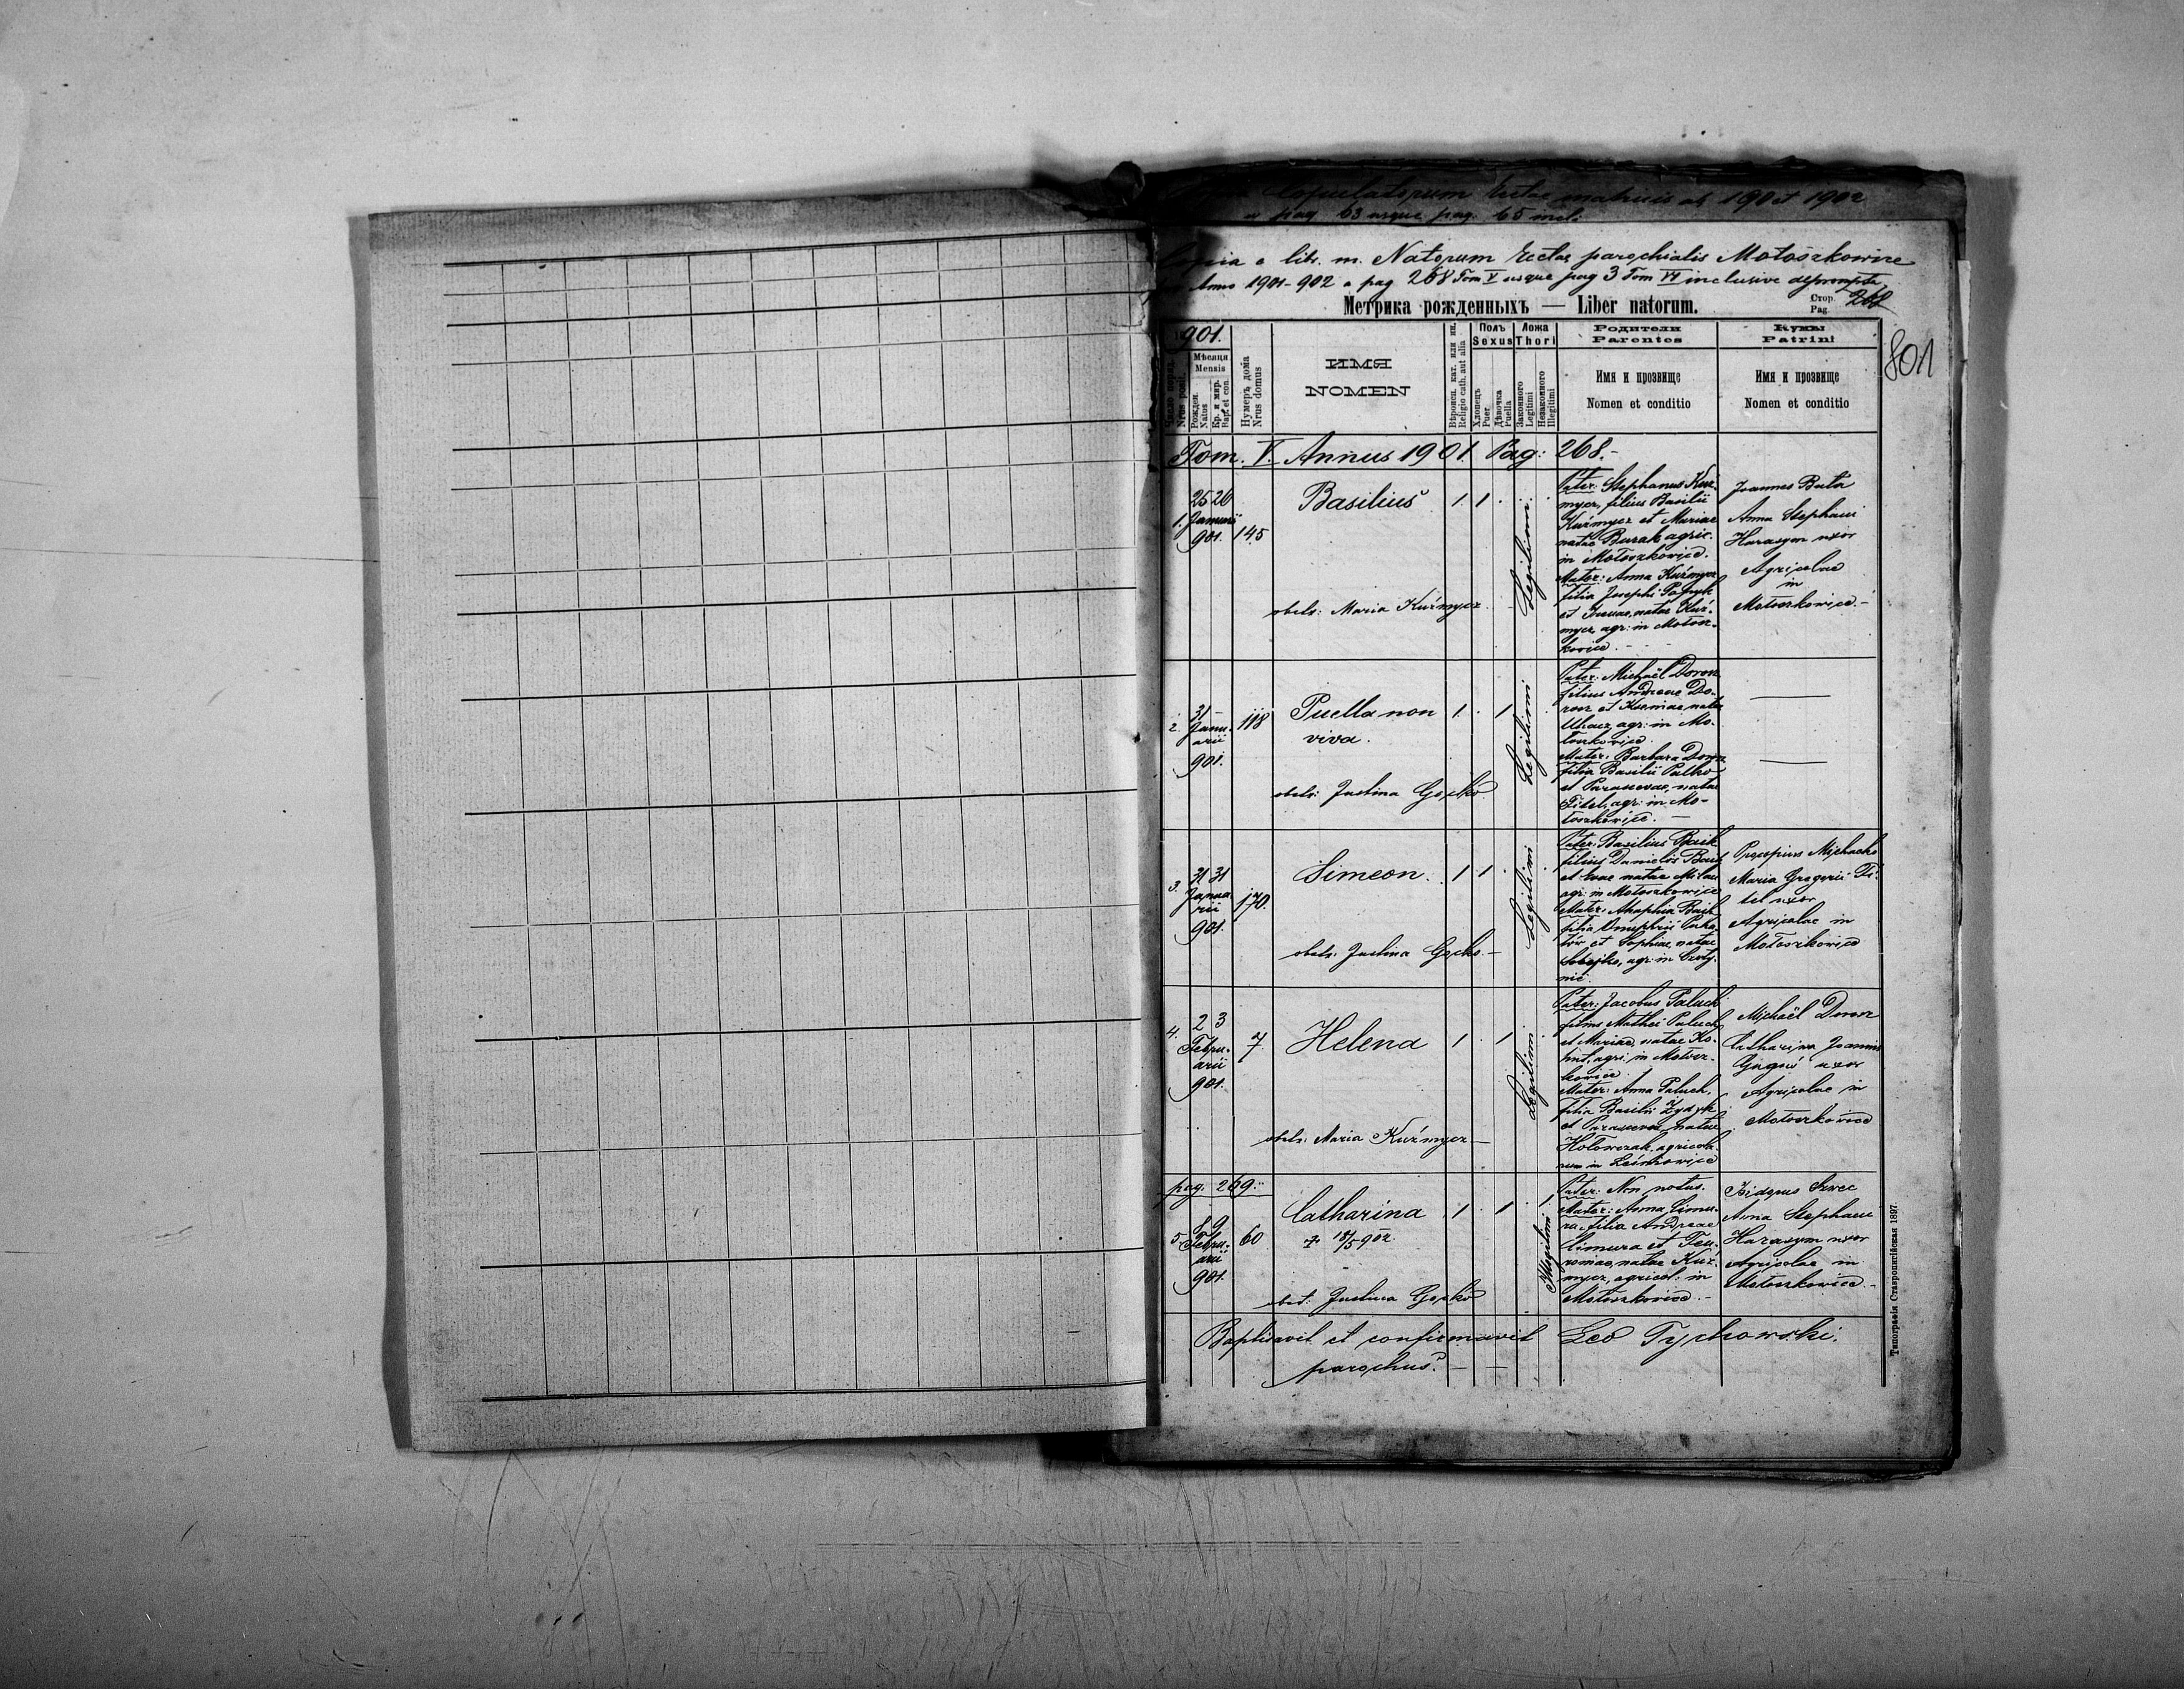 Copulatorum Eccles matricis ab 1901 et 1902
a pag 63 usque pag. 65 incl.
Copia e lib. m. Natorum Ecclae parochialis Mołoszkowice
Anno 1901-902 a pag 268 Tom V usque pag 3 Tom VI inclusive deprompta
Метрика рожденныхъ — Liber natorum.
Стор.
Pag.
268
801
901.
Число поряд.
Nrus posit.
Мѣсяця
Mensis
Рожден.
Natus
Кр. и мир.
Bap. et con.
Нумеръ дома
Nrus domus
ИМЯ
NOMEN
Вѣроисп. кат. или ин.
Religio cath. aut alia
Полъ
Sexus
Хлопецъ
Puer
Дѣвочка
Puella
Ложа
Thori
Законного
Legitimi
Незаконного
Illegitimi
Родители
Parentes
Имя и прозвище
Nomen et conditio
Кумы
Patrini
Имя и прозвище
Nomen et conditio
Tom. V. Annus 1901. Pag: 268.-
1.
25 26
Januarii
901.
145
Basilius
obstr: Maria Kuźmycz
1. 1.
Legitimi
Pater: Stephanus Kuź-
mycz, filius Basilii
Kuźmycz et Mariae
natae Burak agric.
in Mołoszkowice.
Mater: Anna Kuźmycz
filia Josephi
et natae Kuź-
mycz, agr: in Mołosz-
kowice.
Joannes Buta
Anna Stephani
Harasym uxor
Agricolae
in
Mołoszkowice.-
2.
31 -
Janu-
arii
901.
118
Puella non
viva.
obstr: Justina Gocko
1. 1
Legitimi
Pater: Michaël Dorosz
filius Andreae Do-
rosz et natae
agr: in Mo-
łoszkowice
Mater: Barbara Dorosz
filia Basilii
et Parascevae, natae
Fitel, agr: in Mo-
łoszkowice. -
3.
31 31
Janua
rii
901.
170.
Simeon.
obstr. Justina Gocko.-
1 1.
Legitimi
Pater: Basilius Baik
filius Danielis Baik
et Evae natae
agr: in Mołoszkowice
Mater: Ahaphia Baik
filia Onuphrii
et Sophiae, natae
agr: in
Procopius Michacko
Maria Gregorii Fi-
tel uxor
Agricolae in
Mołoszkowice
4.
2 3
Febru-
arii
901.
7.
Helena
obstr: Maria Kuźmycz -
1. 1.
Legitimi
Pater: Jacobus Paluch
filius Mathei Paluch
et Mariae, natae Ko-
agr: in Mołosz-
kowice.
Mater: Anna Paluch,
filia Basilii Żydyk
et Parascevae natae
Hołowczak, agricola-
rum in
Michaël Dorosz
Catharina Joannis
uxor
Agricolae in
Mołoszkowice
pag. 269.
5.
8 9
Febru-
arii
901.
60
Catharina
† 18/5 902
obst: Justina Gocko
1. 1.
Illegitimi
Pater: Non notus.
Mater: Anna Cimu-
ra, filia Andreae
Cimura et Feu-
roniae, natae Kuź-
mycz, agricol: in
Mołoszkowice.-
Isidorus Szwec
Anna Stephani
Harasym uxor
Agricolae in
Mołoszkowice.-
Baptisavit et confirmavit Leo Tychowski.
parochus. - -
Типографія Ставропигійская 1897.